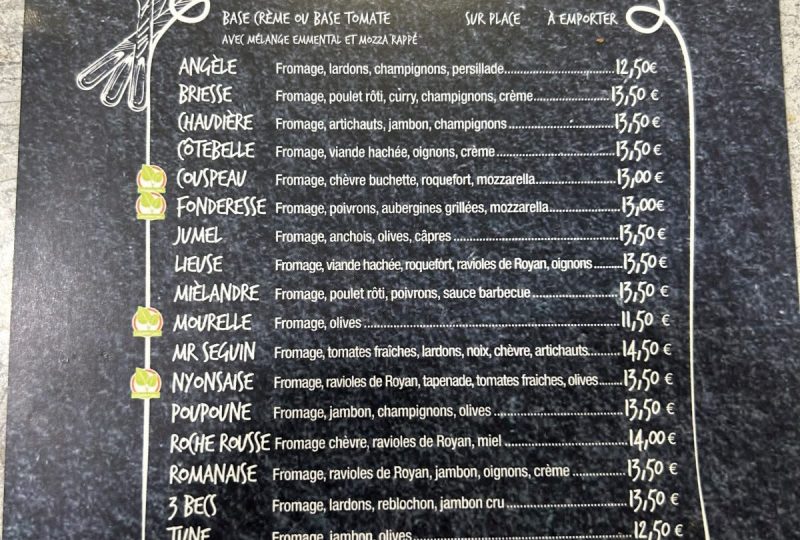 BASE CRÈME OU BASE TOMATE SUR PLACE À EMPORTER
AVEC MÉLANGE EMMENTAL ET MOZZA RAPPÉ
ANGÈLE Fromage, lardons, champignons, persillade 12,50€
BRIESSE Fromage, poulet rôti, curry, champignons, crème 13,50 €
CHAUDIÈRE Fromage, artichauts, jambon, champignons 13,50 €
CÔTEBELLE Fromage, viande hachée, oignons, crème 13,50 €
COUSPEAU Fromage, chèvre buchette, roquefort, mozzarella 13,00 €
FONDERESSE Fromage, poivrons, aubergines grillées, mozzarella 13,00€
JUMEL Fromage, anchois, olives, câpres 13,50 €
LIEUSE Fromage, viande hachée, roquefort, ravioles de Royan, oignons 13,50 €
MIÈLANDRE Fromage, poulet rôti, poivrons, sauce barbecue 13,50 €
MOURELLE Fromage, olives 11,50 €
MR SEGUIN Fromage, tomates fraîches, lardons, noix, chèvre, artichauts 14,50 €
NYONSAISE Fromage, ravioles de Royan, tapenade, tomates fraiches, olives 13,50 €
POUPOUNE Fromage, jambon, champignons, olives 13,50 €
ROCHE ROUSSE Fromage chèvre, ravioles de Royan, miel 14,00 €
ROMANAISE Fromage, ravioles de Royan, jambon, oignons, crème 13,50 €
3 BECS Fromage, lardons, reblochon, jambon cru 13,50 €
TUNE Fromage, jambon, olives 12,50 €